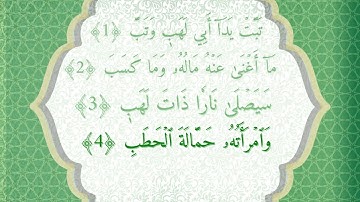 تَبَّتْ يَدَآ أَبِي لَهَبٖ وَتَبَّ ﴿1﴾
مَآ أَغْنَىٰ عَنْهُ مَالُهُۥ وَمَا كَسَبَ ﴿2﴾
سَيَصْلَىٰ نَارٗا ذَاتَ لَهَبٖ ﴿3﴾
وَٱمْرَأَتُهُۥ حَمَّالَةَ ٱلْحَطَبِ ﴿4﴾